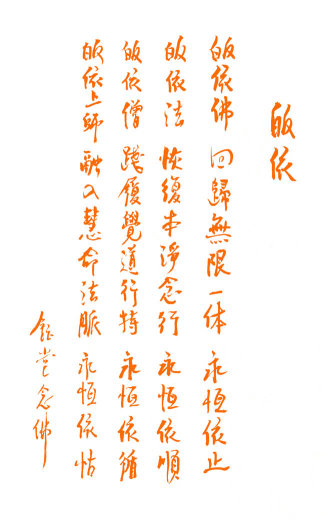 皈依
皈依佛 回歸無限一体 永恒依止
皈依法 恢復本淨念行 永恒依順
皈依僧 踐履覺道行持 永恒依循
皈依上師 融入慧命法脈 永恒依怙
念佛